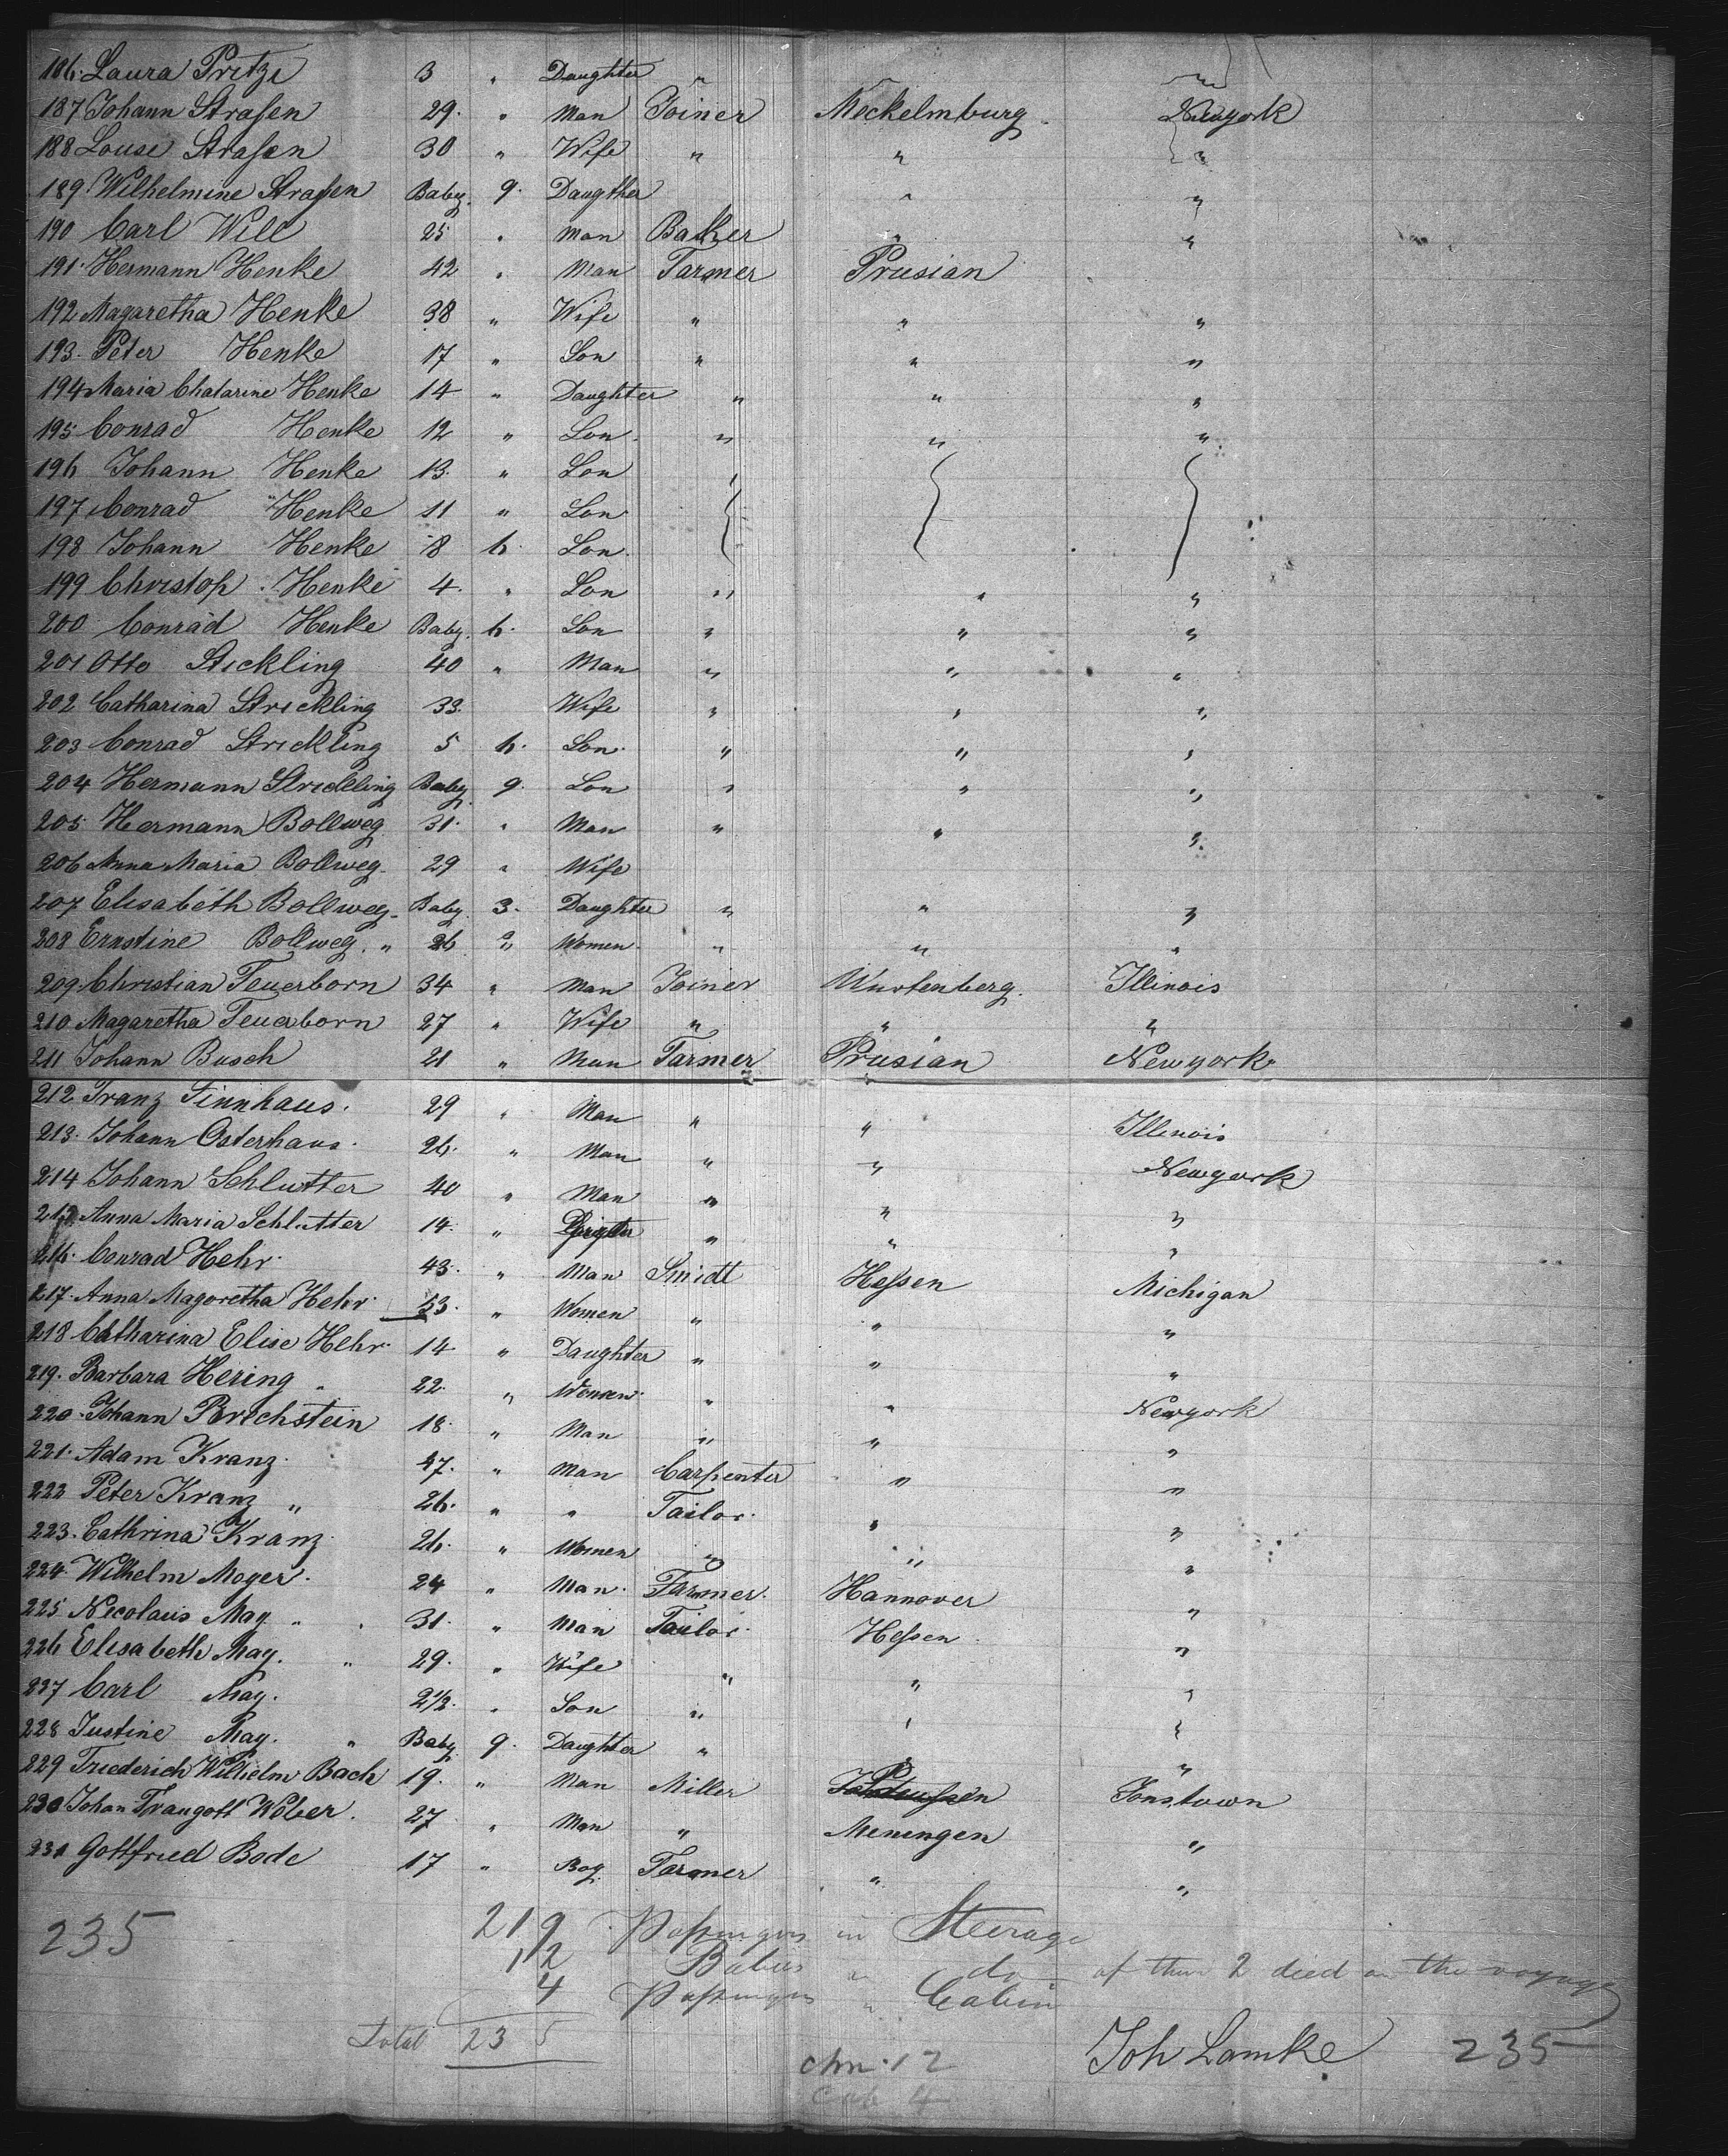 186. Laura Pritze 3 " Daughter "
187 Johann Straſen 29. " Man Joiner Meckelmburg Newyork
188 Louse Straſen 30 " Wife " " "
189. Wilhelmine Straſen Baby. 9. Daugther " "
190 Carl Will 25 " Man Baker " "
191. Hermann Henke 42 " Man Farmer Prusian
192 Magaretha Henke 38 " Wife " " "
193. Peter Henke 17 " Son " " "
194 Maria Chatarine Henke 14 " Daughter " " "
195 Conrad Henke 12 " Son. " " "
196 Johann Henke 13. " Son
197 Conrad Henke 11 " Son
198 Johann Henke 8 6. Son.
199 Christop. Henke 4. " Son " " "
200 Conrad Henke Baby. 6. Son " " "
201 Otto Stickling 40 " Man " " "
202 Catharina Strickling 33. Wife " " "
203 Conrad Strickling 5 6. Son. " " "
204 Hermann Strickling Baby 9. Son " " "
205 Hermann Bollweg 31. " Man " " "
206 Anna Maria Bollweg. 29 " Wife
207 Elisabeth Bollweg. Baby. 3. Daughter " " "
208 Ernstine Bollweg. " 26 " Women. " " "
209. Christian Feuerborn 34 " Man Joiner Wurtenberg. Illinois
210. Magaretha Feuerborn 27 " Wife " " "
211 Johann Busch 21 " Man Farmer Prusian Newyork
212 Franz Finnhaus. 29 " Man " " Illinois
213. Johann Osterhaus. 26. " Man " " Newyork
214 Johann Schlutter 40 " Man " " "
215. Anna Maria Schlutter 14. " " " "
216. Conrad Hehr. 43. " Man Smidt Heſsen Michigan
217. Anna Magoretha Hehr. 53. " Women " " "
218 Catharina Elise Hehr. 14 " Daughter " " "
219. Barbara Hering " 22. " Women. " " Newyork
220. Johann Brechstein 18. " Man " " "
221. Adam Kranz. 47. " Man Carpenter " "
222 Peter Kranz " 26. " " Tailor. " "
223. Cathrina Kranz. 26. " Women " " "
224. Wilhelm Moyer. 24 " Man. Farmer. Hannover "
225 Necolaus May " 31. " Man Tailor. Heſsen "
226 Elisabeth May. " 29. " Wife " " "
227 Carl May. 2½. " Son " " "
228 Justine May. " Baby 9. Daughter " " "
229 Friederich Wilhelm Bach 19. " Man Miller Jonstown
230 Johan Traugott Wober. 27 " Man " Meningen "
231 Gottfried Bode 17 " Boy. Farmer " "
235 219 Paſsengers in Steerage
12 Babies " do of them 2 died on the voyage
4 Paſsengers " Cabin
Total 235
Joh Lamke 235
chn. 12
Cab 4